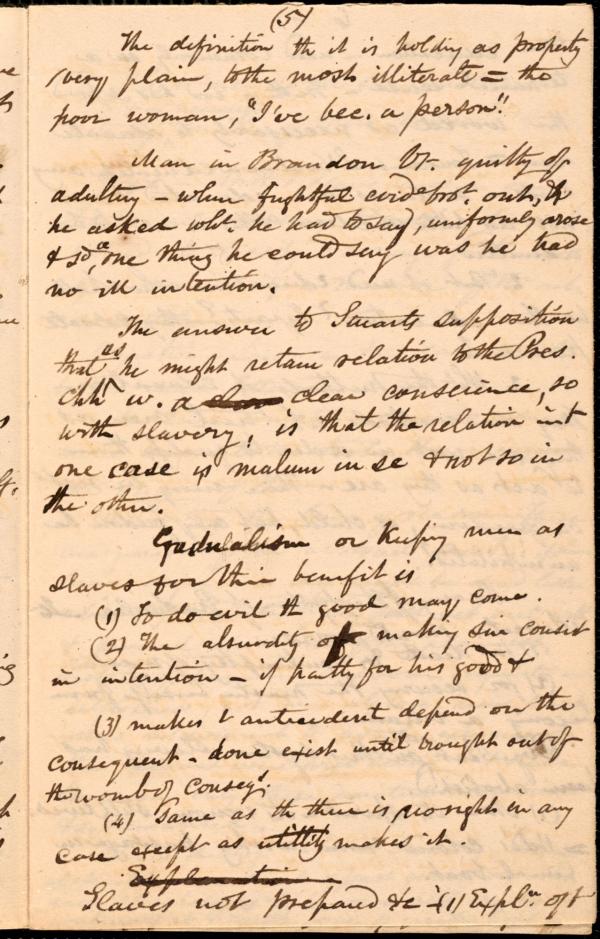 (5)
The definition th it is holding as property
very plain, to the most illiterate = the
poor woman, "I've bec. a person"!
Man in Brandon Vt. guilty of
adultery – when frightful evid. brot. out, &
he asked wht. he had to say, uniformly arose
& sd, one thing he could say was he had
no ill intention.
The answer to Stuarts supposition
that as he might retain relation to the Pres.
Chh w. a clear conscience, so
with slavery, is that the relation in t
one case is malum in se & not so in
the other.
Gradualism or Keeping men as
slaves for their benefit is
(1) To do evil th good may come.
(2) The absurdity of making sin consist
in intention – if partly for his good &
(3) makes t antecedent depend on the
consequent – done exist until brought out of
the womb of conseqs.
(4) Same as th there is no right in any
case except as utility makes it
Explanation
Slaves not prepared &c – (1) Expln of t